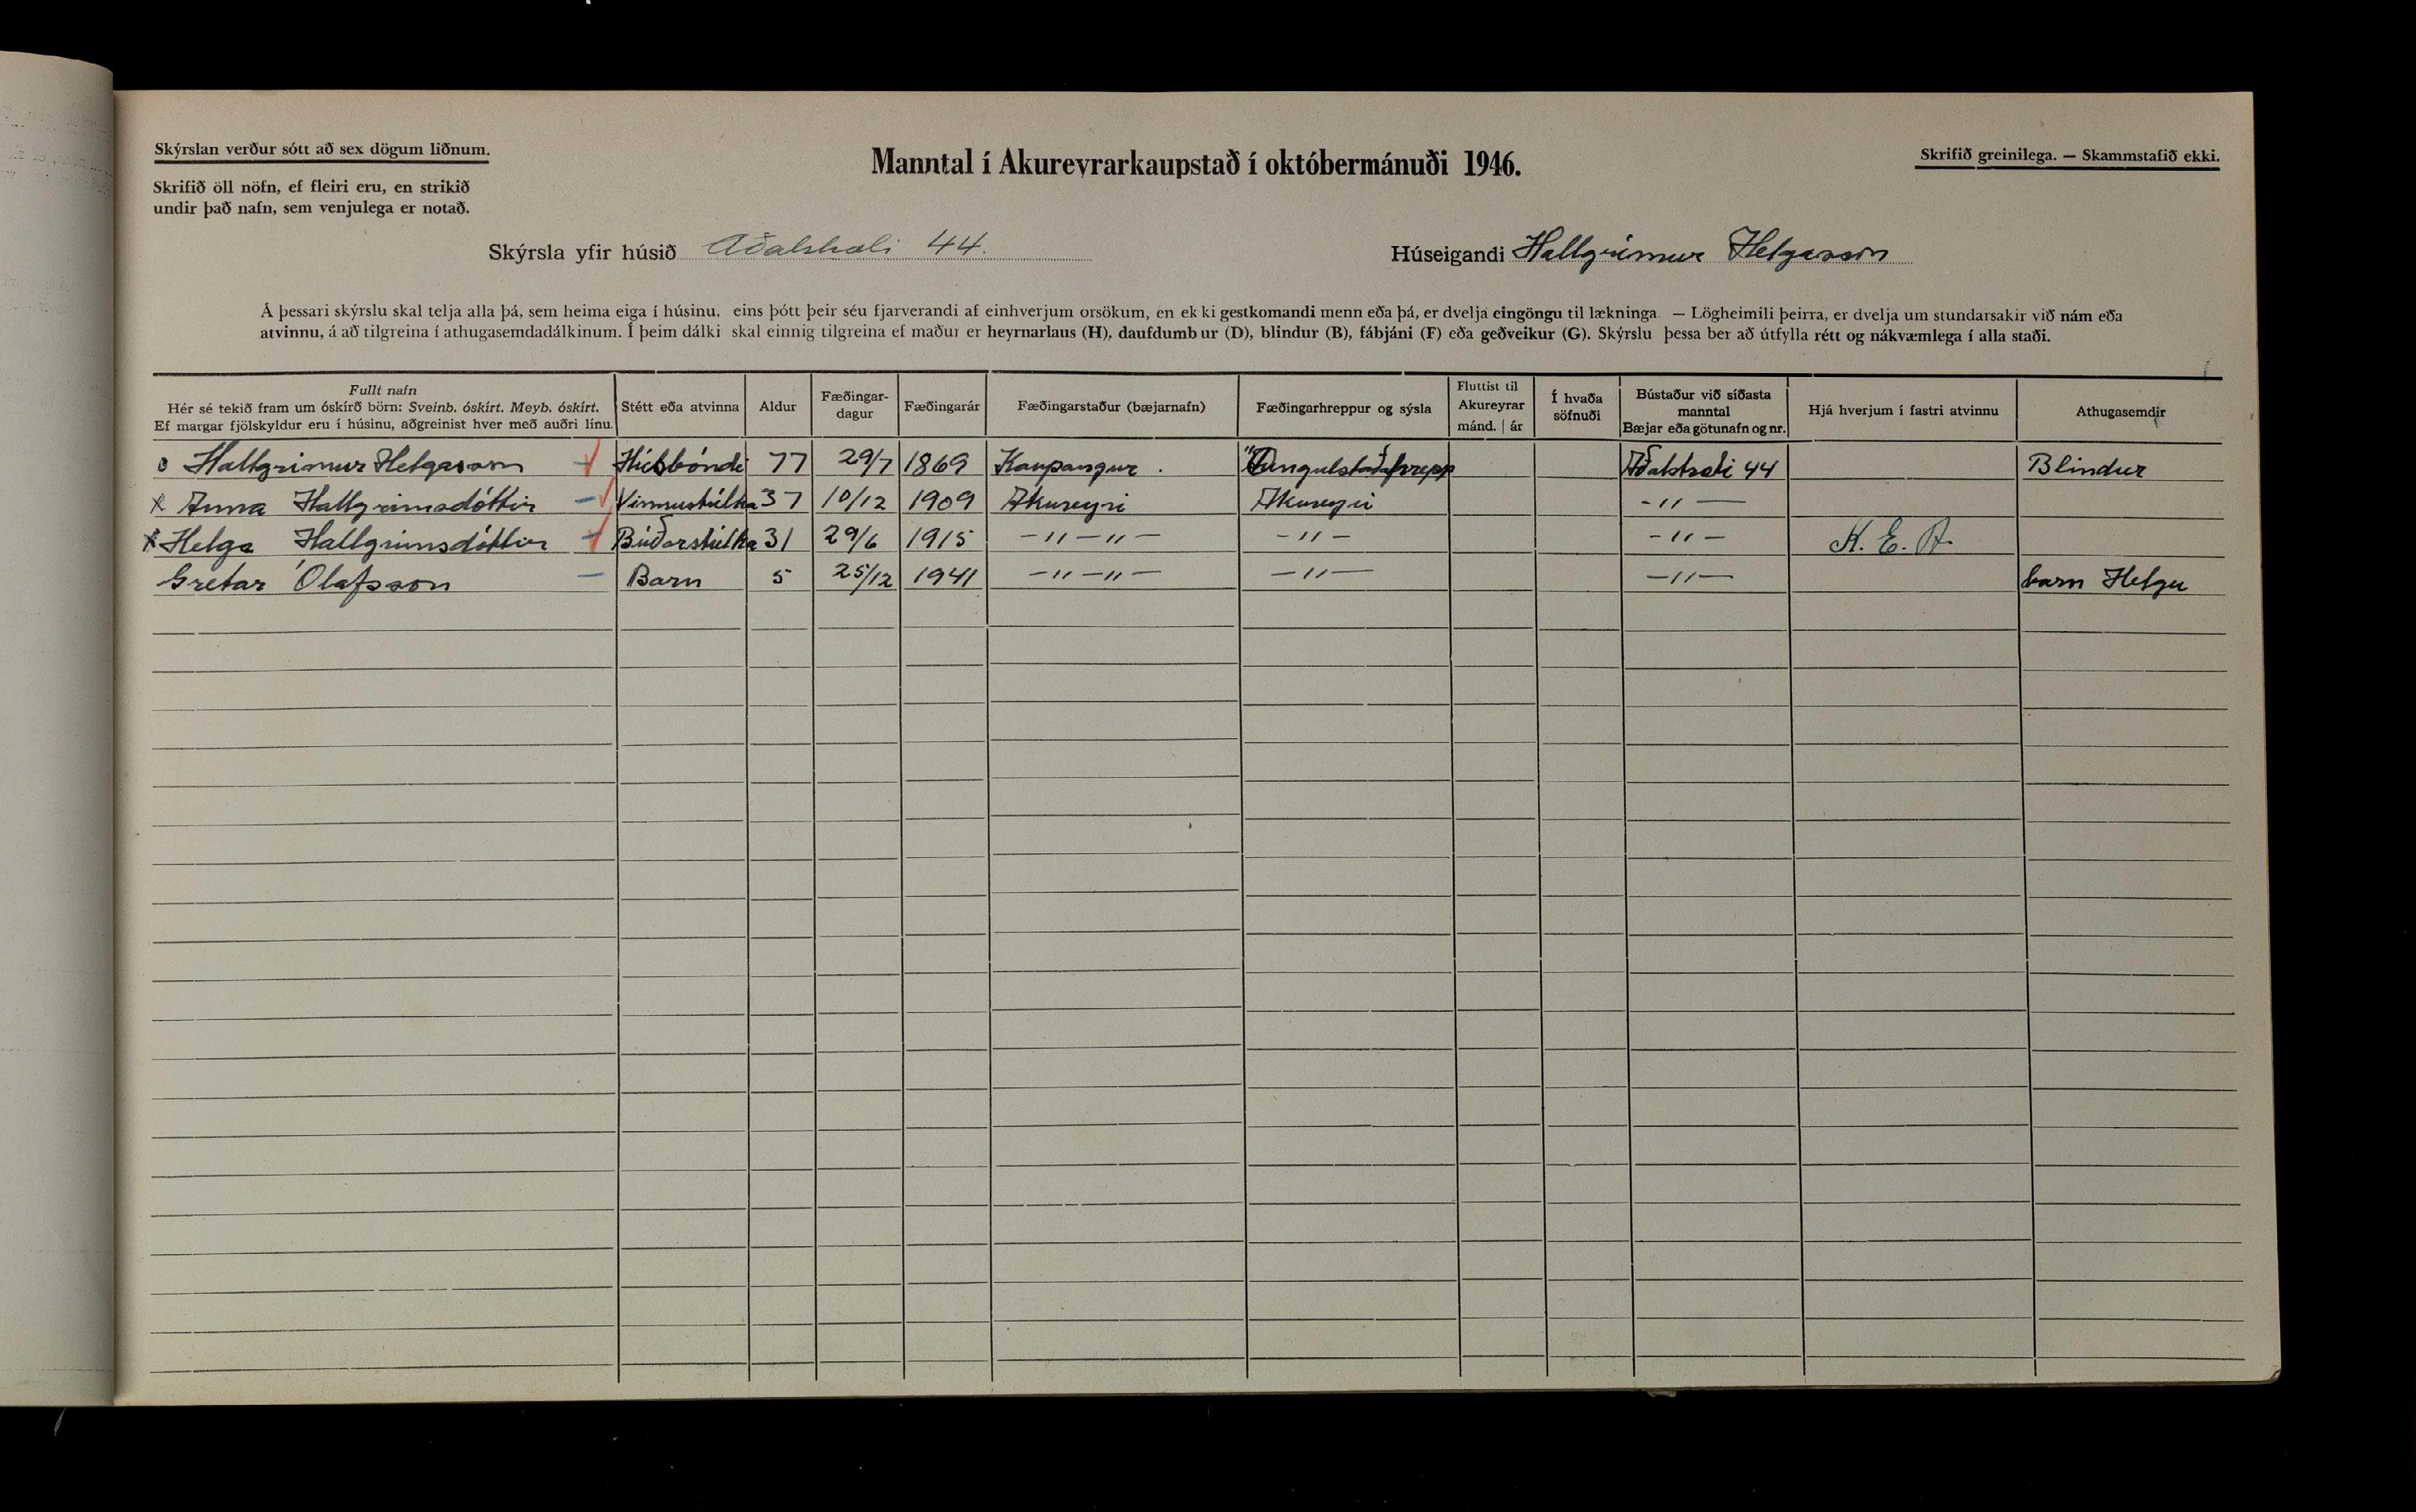 Skýrslan verður sótt að sex dögum liðnum.
Skrifið öll nöfn, ef fleiri eru, en strikið
undir það nafn, sem venjulega er notað.
Manntal í Akureyrarkaupstað í októbermánuði 1946.
Skrifið greinilega. — Skammstafið ekki.
Skýrsla yfir húsið Aðalstræti 44.
Húseigandi Hallgrímur Helgason
Á þessari skýrslu skal telja alla þá, sem heima eiga í húsinu, eins þótt þeir séu fjarverandi af einhverjum orsökum, en ekki gestkomandi menn eða þá, er dvelja eingöngu til lækninga. — Lögheimili þeirra, er dvelja um stundarsakir við nám eða
atvinnu, á að tilgreina í athugasemdadálkinum. Í þeim dálki skal einnig tilgreina ef maður er heyrnarlaus (H), daufdumbur (D), blindur (B), fábjáni (F) eða geðveikur (G). Skýrslu þessa ber að útfylla rétt og nákvæmlega í alla staði.
Fullt nafn
Hér sé tekið fram um óskírð börn: Sveinb. óskírt. Meyb. óskírt.
Ef margar fjölskyldur eru í húsinu, aðgreinist hver með auðri línu.
Stétt eða atvinna
Aldur
Fæðingar-
dagur
Fæðingarár
Fæðingarstaður (bæjarnafn)
Fæðingarhreppur og sýsla
Fluttist til
Akureyrar
mánd. | ár
Í hvaða
söfnuði
Bústaður við síðasta
manntal
Bæjar eða götunafn og nr.
Hjá hverjum í fastri atvinnu
Athugasemdir
o Hallgrimur Helgason Húsbóndi 77 29/7 1869 Kaupangur . Öngulstaðahrepp Aðalstræti 44 Blindur
x Anna Hallgrimsdóttir Vinnustúlka 37 10/12 1909 Akureyri Akureyri -"-
x Helga Hallgrimsdóttir Búðarstúlka 31 29/6 1915 -"-"- -"- -"- K. E. A.
Gretar Ólafsson Barn 5 25/12 1941 -"-"- -"- -"- barn Helgu